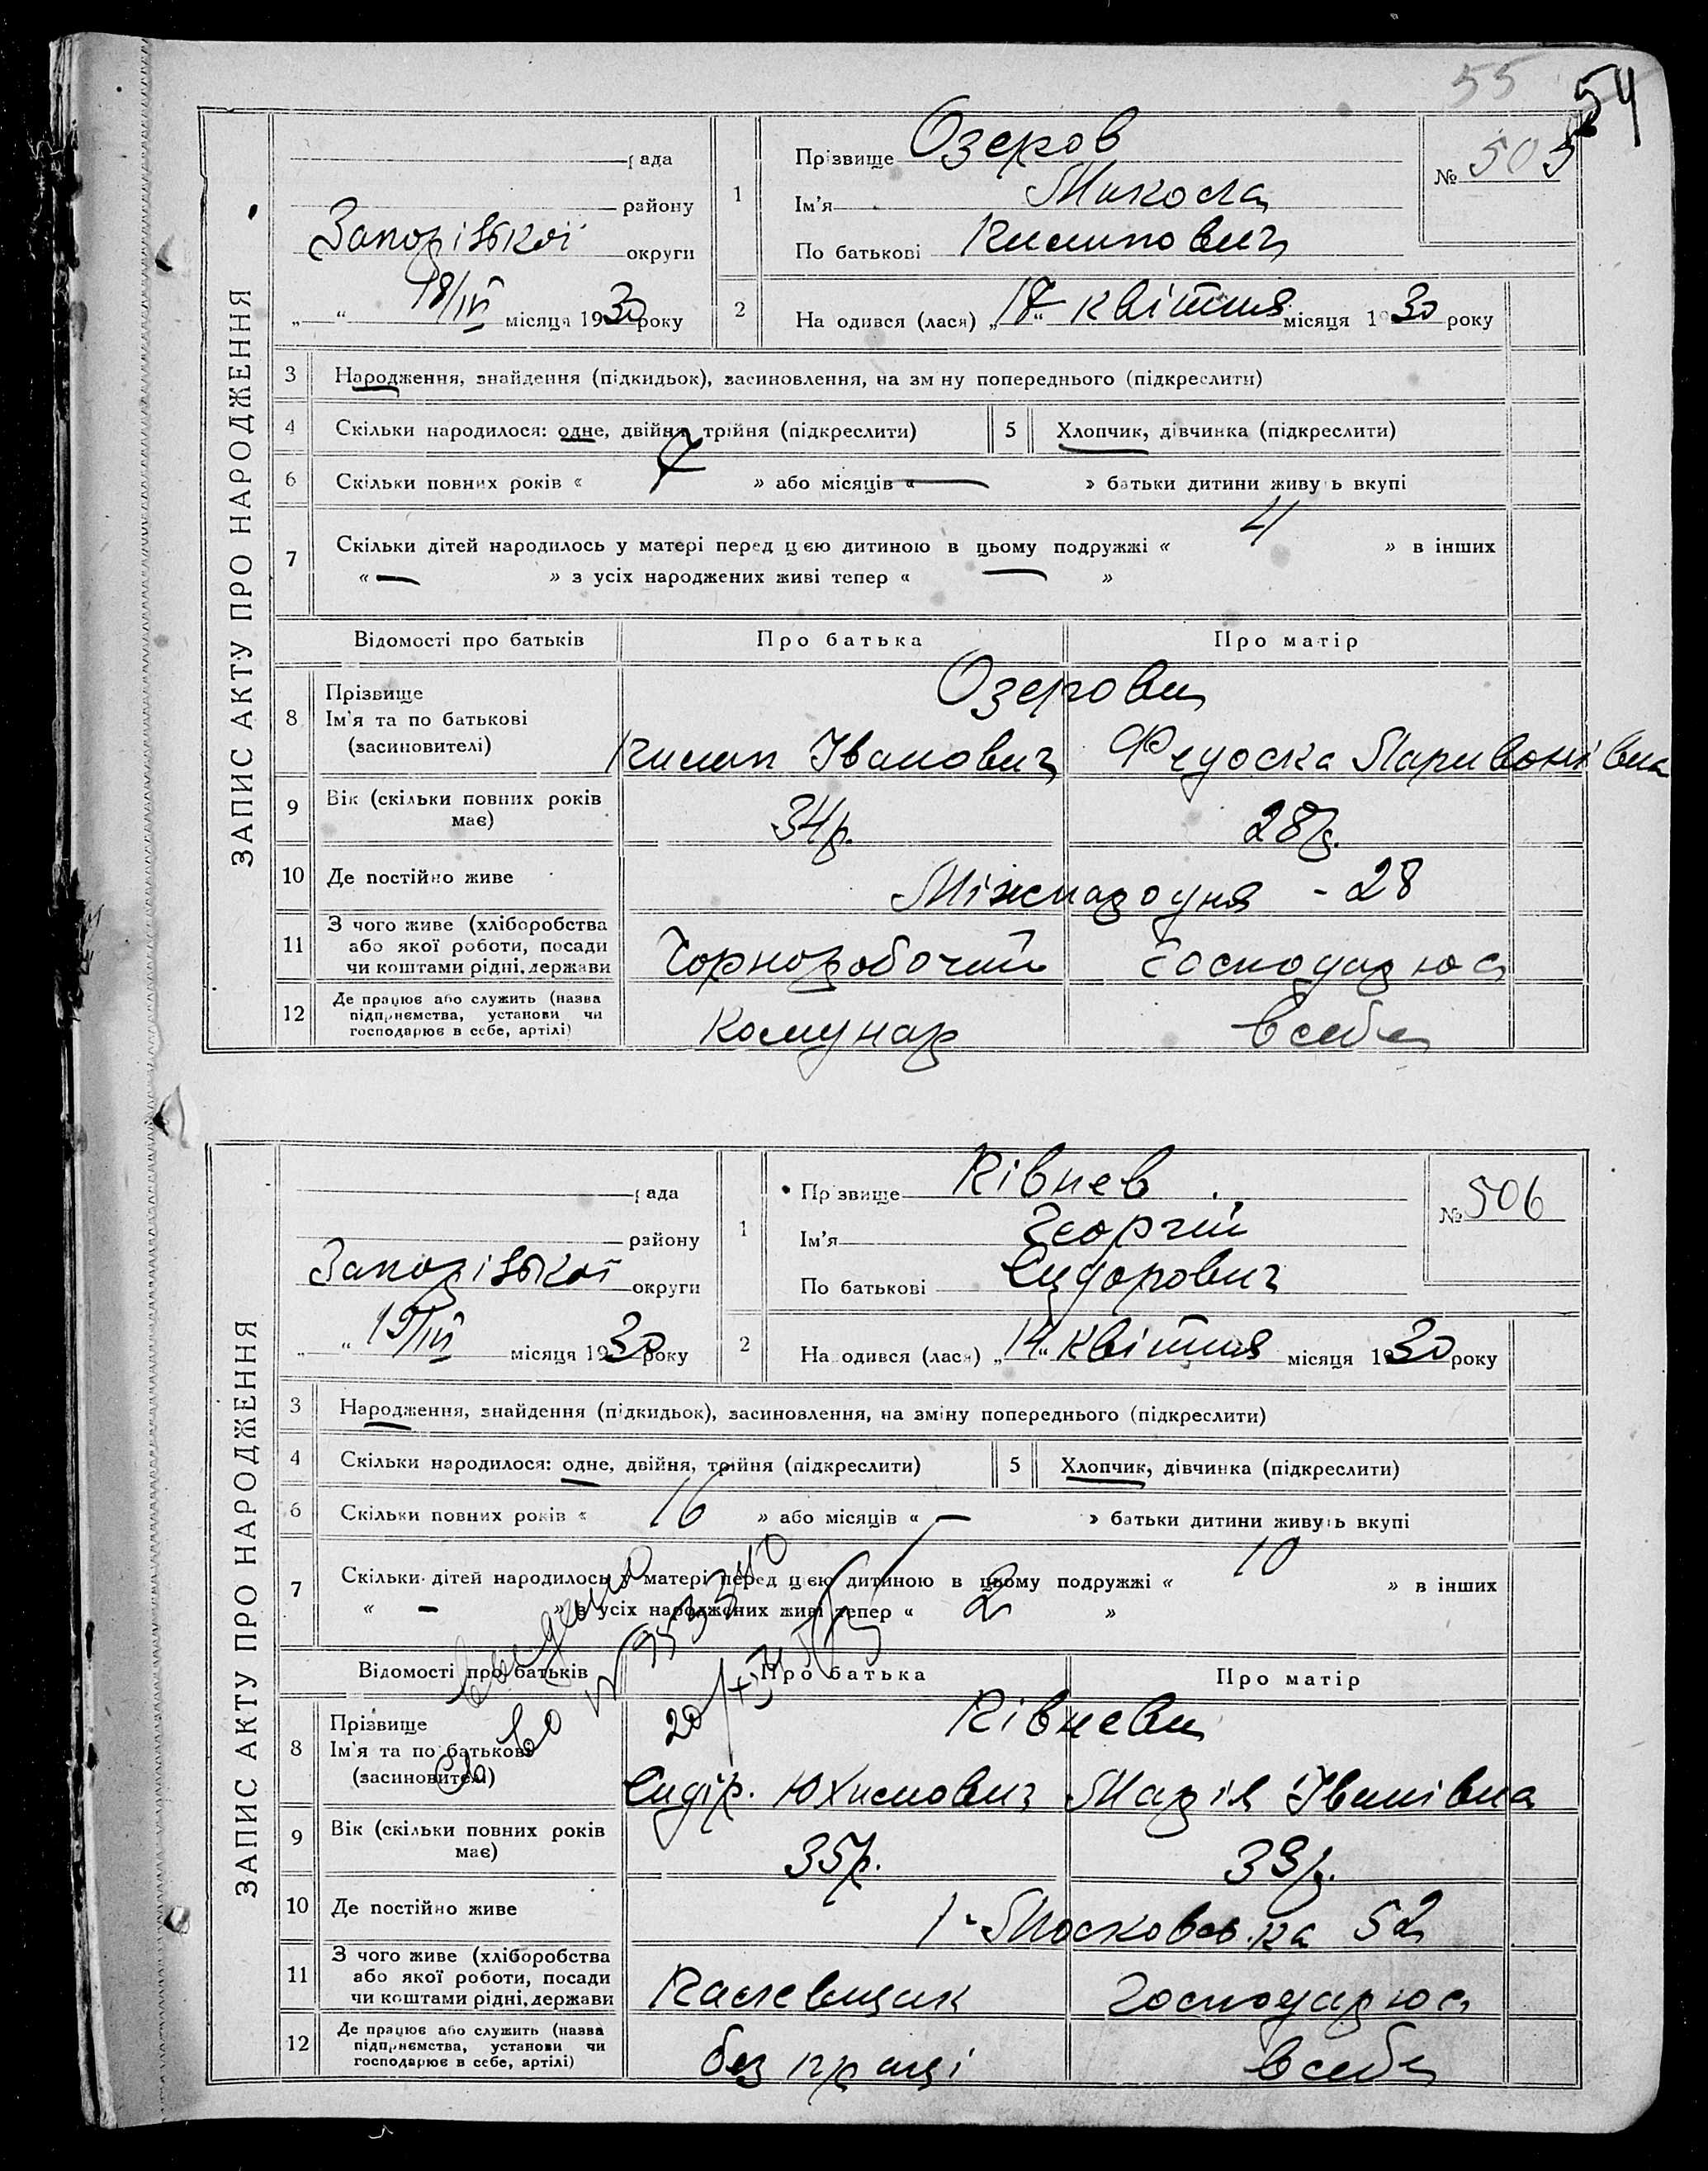 55 54
ЗАПИС АКТУ ПРО НАРОДЖЕННЯ
рада
району
Запорізької округи
„ “ 18/IV місяця 1930 року
1 Прізвище Озеров
Ім'я Микола
По батькові Килипович
№ 505
2 Народився (лася) „17“ квітня місяця 1930 року
3 Народження, знайдення (підкидьок), засиновлення, на зміну попереднього (підкреслити)
4 Скільки народилося: одне, двійня, трійня (підкреслити) 5 Хлопчик, дівчинка (підкреслити)
6 Скільки повних років « 7 » або місяців « — » батьки дитини живуть вкупі
7 Скільки дітей народилось у матері перед цією дитиною в цьому подружжі « 4 » в інших
« — » з усіх народжених живі тепер « — »
Відомості про батьків Про батька Про матір
8 Прізвище Озерови
Ім'я та по батькові
(засиновителі) Іванович Федоска Паривонівна
9 Вік (скільки повних років має) 34 р. 28 р.
10 Де постійно живе Міжнародня - 28
11 З чого живе (хліборобства або якої роботи, посади чи коштами рідні, держави Чорноробочий Господарює
12 Де працює або служить (назва підприємства, установи чи господарює в себе, артілі) Комунар в себе
ЗАПИС АКТУ ПРО НАРОДЖЕННЯ
рада
району
Запорізької округи
„ “ 19/IV місяця 1930 року
1 Прізвище Рівнев
Ім'я Георгій
По батькові Сидорович
№ 506
2 Народився (лася) „14“ квітня місяця 1930 року
3 Народження, знайдення (підкидьок), засиновлення, на зміну попереднього (підкреслити)
4 Скільки народилося: одне, двійня, трійня (підкреслити) 5 Хлопчик, дівчинка (підкреслити)
6 Скільки повних років « 16 » або місяців « — » батьки дитини живуть вкупі
7 Скільки дітей народилось у матері перед цією дитиною в цьому подружжі « 10 » в інших
« - » з усіх народжених живі тепер « 2 »
Відомості про батьків Про батька Про матір
8 Прізвище Рівневи
Ім'я та по батькові
(засиновителі) Сидір. Юхимович Марія Іванівна
9 Вік (скільки повних років має) 35 р. 39 р.
10 Де постійно живе 52
11 З чого живе (хліборобства або якої роботи, посади чи коштами рідні, держави Господарює
12 Де працює або служить (назва підприємства, установи чи господарює в себе, артілі) без праці в себе